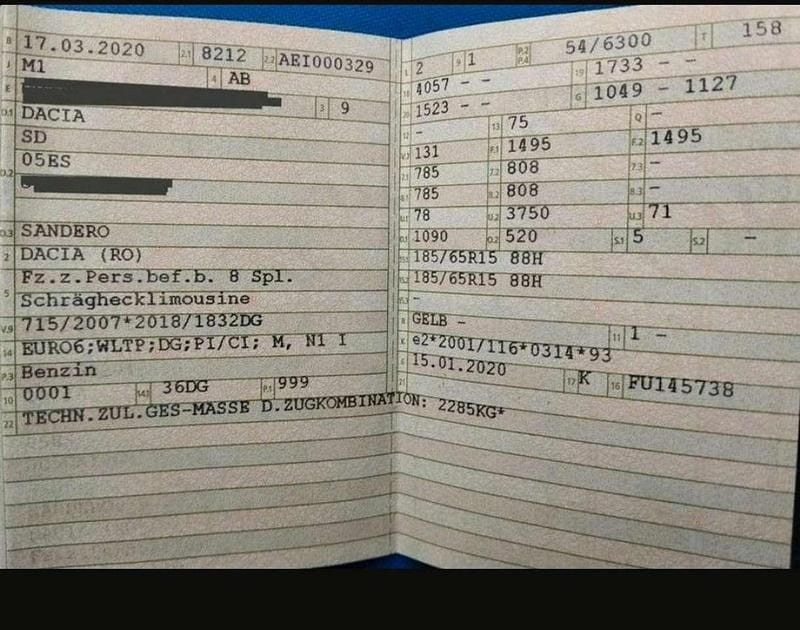 B 17.03.2020 2.1 8212 2.2 AEI000329
J M1 4 AB
E 3 9
D.1 DACIA
D.2 SD
05ES
D.3 SANDERO
2 DACIA (RO)
5 Fz.z.Pers.bef.b. 8 Spl.
Schräghecklimousine
V.9 715/2007*2018/1832DG
14 EURO6;WLTP;DG;PI/CI; M, N1 I
P.3 Benzin
10 0001 14.1 36DG P.1 999
22 TECHN.ZUL.GES-MASSE D.ZUGKOMBINATION: 2285KG*
L 2 9 1 P.2 P.4 54/6300 T 158
18 4057 - - 19 1733 - -
20 1523 - - G 1049 - 1127
12 - 13 75 Q -
V.7 131 F.1 1495 F.2 1495
7.1 785 7.2 808 7.3 -
8.1 785 8.2 808 8.3 -
U.1 78 U.2 3750 U.3 71
O.1 1090 O.2 520 S.1 5 S.2 -
15.1 185/65R15 88H
15.2 185/65R15 88H
15.3 -
R GELB - 11 1 -
K e2*2001/116*0314*93
6 15.01.2020 17 K 16 FU145738
21